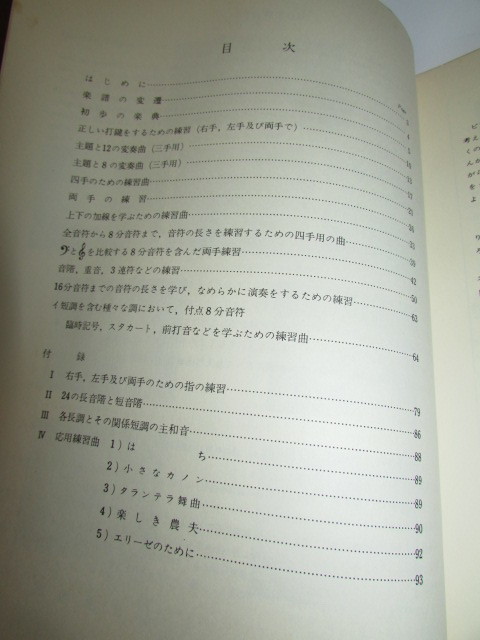 目 次
はじめに 3
楽譜の変遷 4
初歩の楽典 5
正しい打鍵をするための練習（右手，左手及び両手で） 10
主題と12の変奏曲（三手用）
主題と8の変奏曲（三手用）
四手のための練習曲
両手の練習
上下の加線を学ぶための練習曲
全音符から8分音符まで，音符の長さを練習するための四手用の曲
𝄢と𝄞を比較する8分音符を含んだ両手練習 42
音階，重音，3連符などの練習 50
16分音符までの音符の長さを学び，なめらかに演奏をするための練習 63
イ短調を含む種々な調において，付点8分音符
臨時記号，スタカート，前打音などを学ぶための練習曲 64
付 録
Ⅰ 右手，左手及び両手のための指の練習 79
Ⅱ 24の長音階と短音階 86
Ⅲ 各長調とその関係短調の主和音 88
Ⅳ 応用練習曲 1）は ち 89
2）小さなカノン 89
3）タランテラ舞曲 90
4）楽しき農夫 92
5）エリーゼのために 93